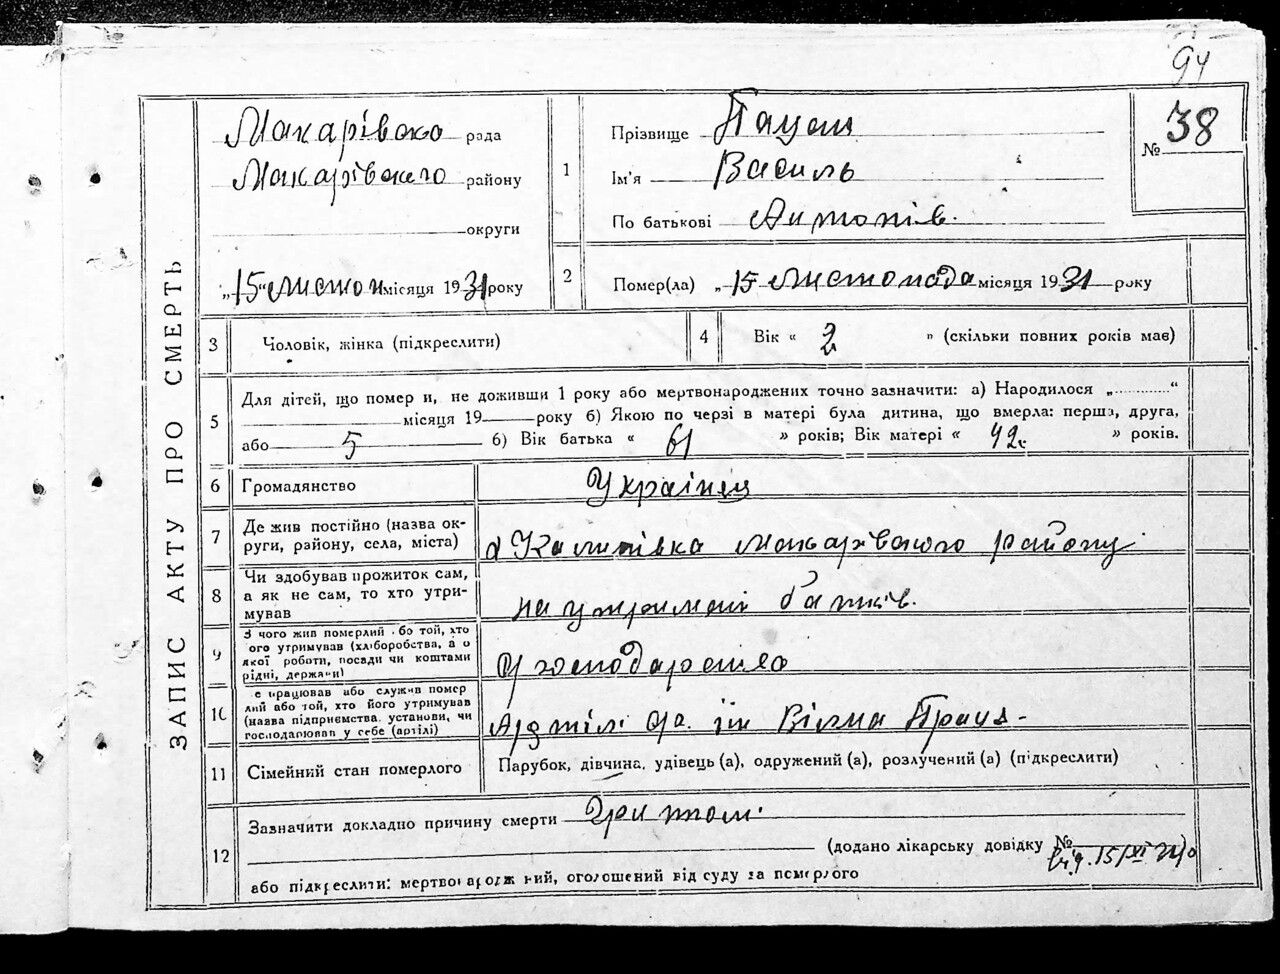 94
ЗАПИС АКТУ ПРО СМЕРТЬ.
Макарівсько рада
Макарівського району
округи
„15“ листоп місяця 1931 року
1
Прізвище Пацеш
Ім'я Василь
По батькові Антонів.
№ 38
2
Помер(ла) „15 Листопада місяця 1931 року
3
Чоловік, жінка (підкреслити)
4
Вік « 2 » (скільки повних років має)
5
Для дітей, що помер и, не доживши 1 року або мертвонароджених точно зазначити: а) Народилося „...........“
місяця 19 року б) Якою по черзі в матері була дитина, що вмерла: перша, друга,
або 5 б) Вік батька « 61 » років; Вік матері « 42 » років.
6
Громадянство
Українец
7
Де жив постійно (назва ок-
руги, району, села, міста)
Калинівка Макарівського району
8
Чи здобував прожиток сам,
а як не сам, то хто утри-
мував
на утримані батьків.
9
З чого жив померлий або той, хто
ого утримував (хліборобства, а о
якої роботи, посади чи коштами
рідні, держави)
10
е працював або служив помер
лий або той, хто його утримував
(назва підприємства, установи, чи
господарював у себе (артілі)
Вільна Праця.
11
Сімейний стан померлого
Парубок, дівчина, удівець (а), одружений (а), розлучений (а) (підкреслити)
12
Зазначити докладно причину смерти
(додано лікарську довідку №
від 15/XI
або підкреслити: мертвонароджений, оголошений від суду за померлого